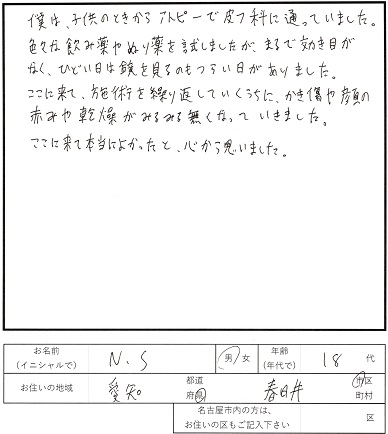 僕は、子供のときからアトピーで皮フ科に通っていました。
色々な飲み薬やぬり薬を試しましたが、まるで効き目が
なく、ひどい日は鏡を見るのもつらい日がありました。
ここに来て、施術を繰り返していくうちに、かき傷や顔の
赤みや乾燥がみるみる無くなっていきました。
ここに来て本当によかったと、心から思いました。
お名前
(イニシャルで) N.S 男/女 年齢
(年代で) 18 代
お住いの地域 愛知 都道
府県 春日井 市区
町村
名古屋市内の方は、
お住いの区もご記入下さい 区